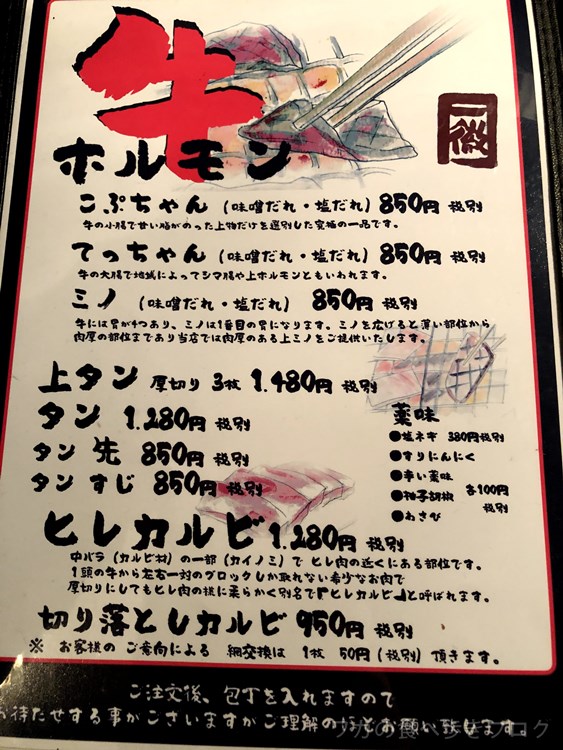 牛
ホルモン
一徹
こぷちゃん (味噌だれ・塩だれ) 850円 税別
牛の小腸で甘い脂がのった上物だけを選別した究極の一品です。
てっちゃん (味噌だれ・塩だれ) 850円 税別
牛の大腸で地域によってシマ腸や上ホルモンともいわれます。
ミノ (味噌だれ・塩だれ) 850円 税別
牛には胃が4つあり、ミノは1番目の胃になります。ミノを広げると薄い部位から
肉厚の部位まであり当店では肉厚のある上ミノをご提供いたします。
上タン 厚切り 3枚 1.480円 税別
タン 1.280円 税別
タン 先 850円 税別
タン すじ 850円 税別
薬味
●塩ネギ 380円税別
●すりにんにく
●辛い薬味
●柚子胡椒 各100円
税別
●わさび
ヒレカルビ 1.280円 税別
中バラ (カルビ材) の一部 (カイノミ) で ヒレ肉の近くにある部位です。
1頭の牛から左右一対のブロックしか取れない希少なお肉で
厚切りにしてもヒレ肉の様に柔らかく別名で『ヒレカルビ』と呼ばれます。
切り落としカルビ 950円 税別
※ お客様の ご意向による 網交換は 1枚 50円 (税別) 頂きます。
ご注文後、包丁を入れますので
お待たせする事がございますがご理解のほどお願い致します。